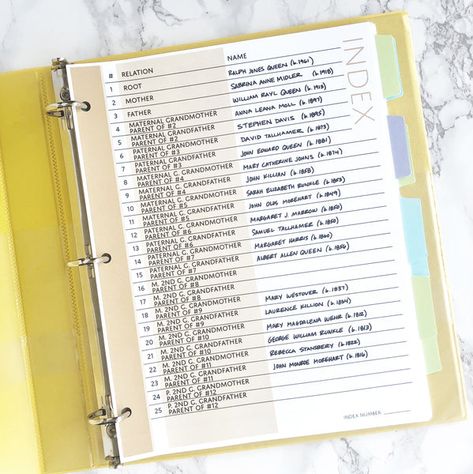 # RELATION NAME
1 ROOT RALPH JONES QUEEN (b. 1961)
2 MOTHER SABRINA ANNE MIDLER (b. 1918)
3 FATHER WILLIAM RAYL QUEEN (b. 1913)
4 MATERNAL GRANDMOTHER ANNA LEANA MOLL (b. 1897)
PARENT OF #2
5 MATERNAL GRANDFATHER STEPHEN DAVIS (b. 1895)
PARENT OF #2
6 PATERNAL GRANDMOTHER DAVID TALLHAMER (b. 1873)
PARENT OF #3
7 PATERNAL GRANDFATHER JOHN EDWARD QUEEN (b. 1881)
PARENT OF #3
8 MATERNAL G. GRANDMOTHER MARY CATHERINE JOHNS (b. 1874)
PARENT OF #4
9 MATERNAL G. GRANDFATHER JOHN KILLIAN (b. 1858)
PARENT OF #4
10 MATERNAL G. GRANDMOTHER SARAH ELIZABETH RUNKLE (b. 1853)
PARENT OF #5
11 MATERNAL G. GRANDFATHER JOHN OLDS MOREHART (b. 1849)
PARENT OF #5
12 PATERNAL G. GRANDMOTHER MARGARET J. MARROW (b. 1850)
PARENT OF #6
13 PATERNAL G. GRANDFATHER SAMUEL TALLHAMER (b. 1850)
PARENT OF #6
14 PATERNAL G. GRANDMOTHER MARGARET HARRIS (b. 1860)
PARENT OF #7
15 PATERNAL G. GRANDFATHER ALBERT ALLEN QUEEN (b. 1856)
PARENT OF #7
16 M. 2ND G. GRANDMOTHER
PARENT OF #8
17 M. 2ND G. GRANDFATHER
PARENT OF #8
18 M. 2ND G. GRANDMOTHER MARY WESTOVER (b. 1837)
PARENT OF #9
19 M. 2ND G. GRANDFATHER LAURENCE KILLION (b. 1824)
PARENT OF #9
20 M. 2ND G. GRANDMOTHER MARY MAGDALENA WEHR (b. 1812)
PARENT OF #10
21 M. 2ND G. GRANDFATHER GEORGE WILLIAM RUNKLE (b. 1812)
PARENT OF #10
22 M. 2ND G. GRANDMOTHER REBECCA STANSBERY (b. 1822)
PARENT OF #11
23 M. 2ND G. GRANDFATHER JOHN MONROE MOREHART (b. 1816)
PARENT OF #11
24 P. 2ND G. GRANDMOTHER
PARENT OF #12
25 P. 2ND G. GRANDFATHER
PARENT OF #12
INDEX
INDEX NUMBER